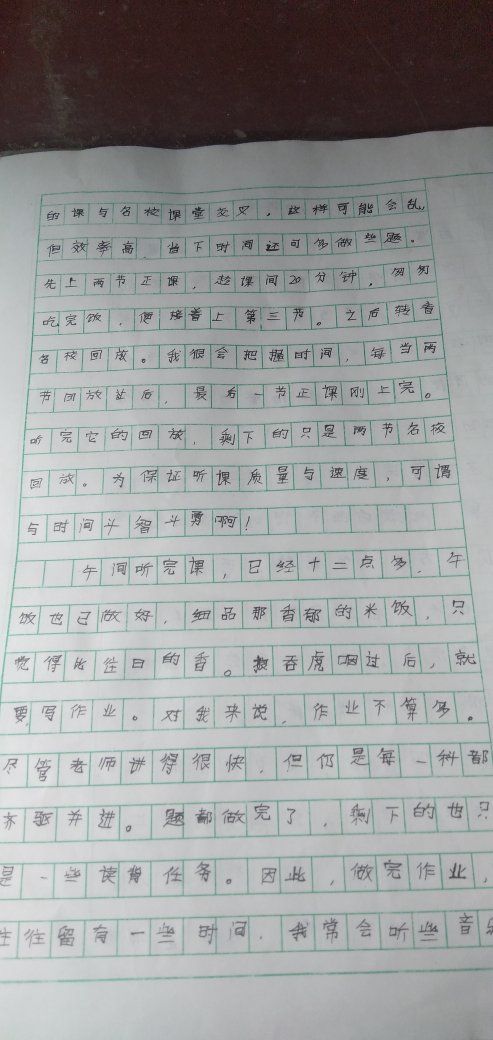 的课与名校课堂交叉，这样可能会乱，
但效率高，当下时间还可多做些题。
先上两节正课，趁课间20分钟，匆匆
吃完饭，便接着上第三节。之后转看
名校回放。我很会把握时间，每当两
节回放让后，最后一节正课刚上完。
听完它的回放，剩下的只是两节名校
回放。为保证听课质量与速度，可谓
与时间斗智斗勇啊！
午间听完课，已经十二点多，午
饭也已做好，细品那香郁的米饭，只
觉得比往日的香。吞虎咽过后，就
要写作业。对我来说，作业不算多。
尽管老师讲得很快，但仍是每一科都
齐驱并进。题都做完了，剩下的也只
是一些读背任务。因此，做完作业，
往往留有一些时间，我常会听些音